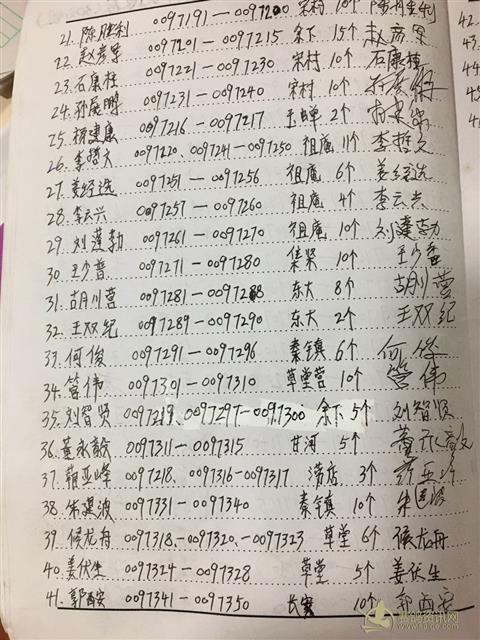 21. 陈胜利 0097191—0097200 宋村 10个 陈胜利
22. 赵彦军 0097201—0097215 余下 15个 赵彦军
23. 石康柱 0097221—0097230 宋村 10个 石康柱
24. 孙展鹏 0097231—0097240 宋村 10个
25. 杨建康 0097216—0097217 玉蝉 2个
26. 李哲文 0097220、0097241—0097250 祖庵 11个 李哲文
27. 姜经选 0097251—0097256 祖庵 6个 姜经选
28. 李云兴 0097257—0097260 祖庵 4个 李云兴
29. 刘蓬勃 0097261—0097270 祖庵 10个 刘蓬勃
30 王少鲁 0097271—0097280 集贤 10个 王少鲁
31. 胡川营 0097281—0097288 东大 8个 胡川营
32. 王双纪 0097289—0097290 东大 2个 王双纪
33. 何俊 0097291—0097296 秦镇 6个 何俊
34. 管伟 0097301—0097310 草堂营 10个 管伟
35. 刘智贤 0097219、0097297—0097300 余下 5个 刘智贤
36. 董永毅 0097311—0097315 甘河 5个 董永毅
37. 亚峰 0097218、0097316—0097317 涝店 3个
38. 朱建波 0097331—0097340 秦镇 10个
39. 候龙舟 0097318、—0097320、—0097323 草堂 6个 候龙舟
40. 姜伏生 0097324—0097328 草堂 5个 姜伏生
41. 郭西安 0097341—0097350 长安 10个 郭西安
42.
43.
44.